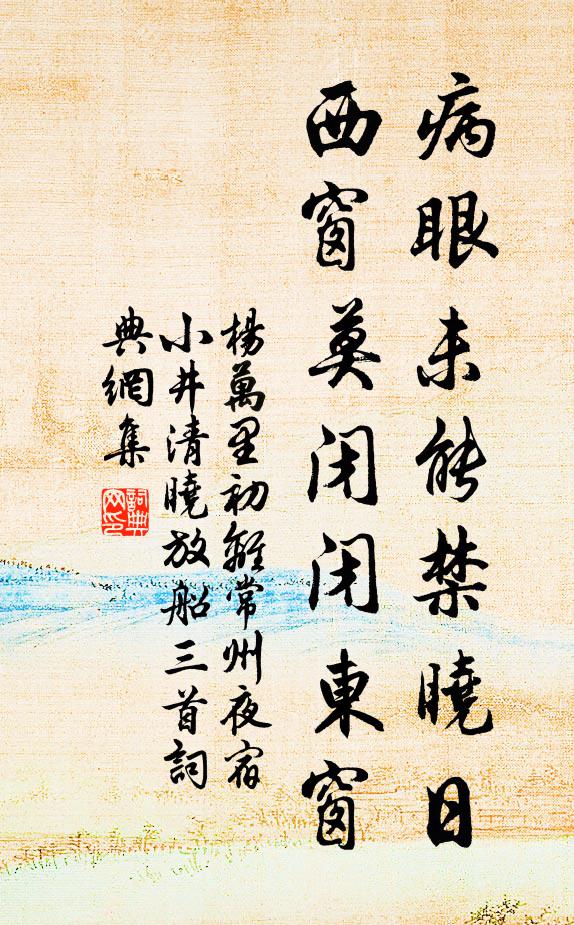 病眼未能禁曉日
西窗莫闭闭東窗
楊萬里初離常州夜宿
小井清曉放船三首詞
典網集
詞典
网印